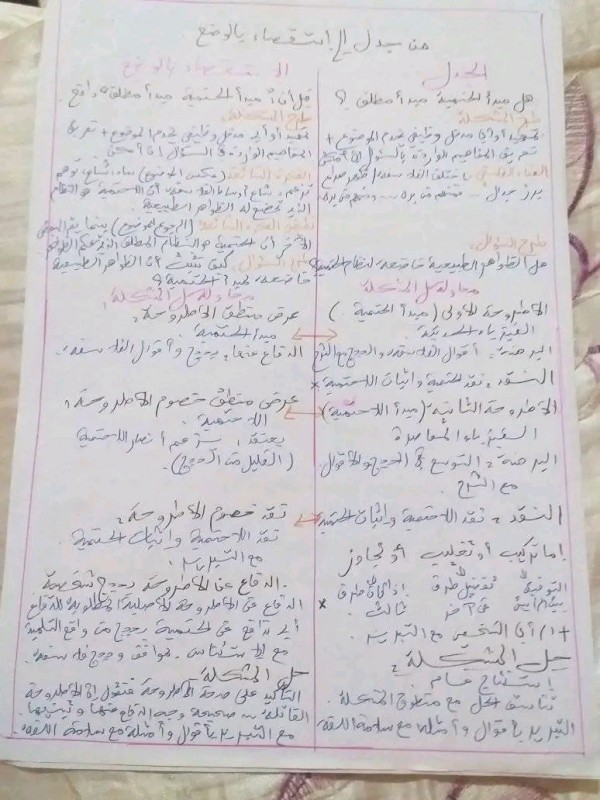 من جدل إلى استقصاء بالوضع
الجدل
هل مبدأ الحتمية مبدأ مطلق؟
طرح المشكلة
تمهيد أو أي مدخل وظيفي يخدم الموضوع +
تعريف المفاهيم الواردة بالسؤال إن أمكن
العناد الفلسفي
برز جدل
طرح السؤال:
هل الظواهر الطبيعية خاضعة لنظام الحتمية؟
محاولة حل المشكلة
الأطروحة الأولى (مبدأ الحتمية)
الفيزياء الحديثة
البرهنة: أقوال الفلاسفة والحجج مع الشرح
النقد: نقد الحتمية وإثبات اللاحتمية
الأطروحة الثانية (مبدأ اللاحتمية)
الفيزياء المعاصرة
البرهنة: التوسع في الحجج والأقوال
مع الشرح.
النقد: نقد اللاحتمية وإثبات الحتمية
إما تركيب أو تغليب أو تجاوز
التوفيق تفضيل طرف
بين الرأيين عن آخر ثالث
+ الرأي الشخصي مع التبرير
حل المشكلة:
استنتاج عام.
تناسق الحل مع منطوق المشكلة.
التبرير بأقوال وأمثلة مع سلامة اللغة.
الاستقصاء بالوضع
قيل أن مبدأ الحتمية مبدأ مطلق، دافع
طرح المشكلة
تمهيد أو أي مدخل وظيفي يخدم الموضوع + تعريف
المفاهيم الواردة في السؤال إن أمكن
الفكرة الشائعة (عكس الموضوع)
الذي تخضع له الظواهر الطبيعية
نقيض الفكرة الشائعة (الرجوع للموضوع) بينما يقر البعض
الآخر أن الحتمية هو النظام المطلق
طرح السؤال: كيف نثبت أن الظواهر الطبيعية
خاضعة لمبدأ الحتمية؟
محاولة حل المشكلة:
عرض منطق الأطروحة:
مبدأ الحتمية
الدفاع عنها بحجج وأقوال الفلاسفة.
عرض منطق خصوم الأطروحة:
اللاحتمية.
يعتقد، يزعم أنصار اللاحتمية
(القليل من الحجج).
نقد خصوم الأطروحة:
نقد اللاحتمية وإثبات الحتمية
مع التبرير.
الدفاع عن الأطروحة بحجج شخصية
الدفاع عن الأطروحة الأصلية المطلوبة للدفاع
أي تدافع عن الحتمية بحجج من واقع التلميذ
مع الاستئناس بمواقف وحجج فلاسفة.
حل المشكلة
التأكيد على صحة الأطروحة فنقول إن الأطروحة
القائلة... صحيحة وجب الدفاع عنها وتبنيها.
مع التبرير بأقوال وأمثلة مع سلامة اللغة.